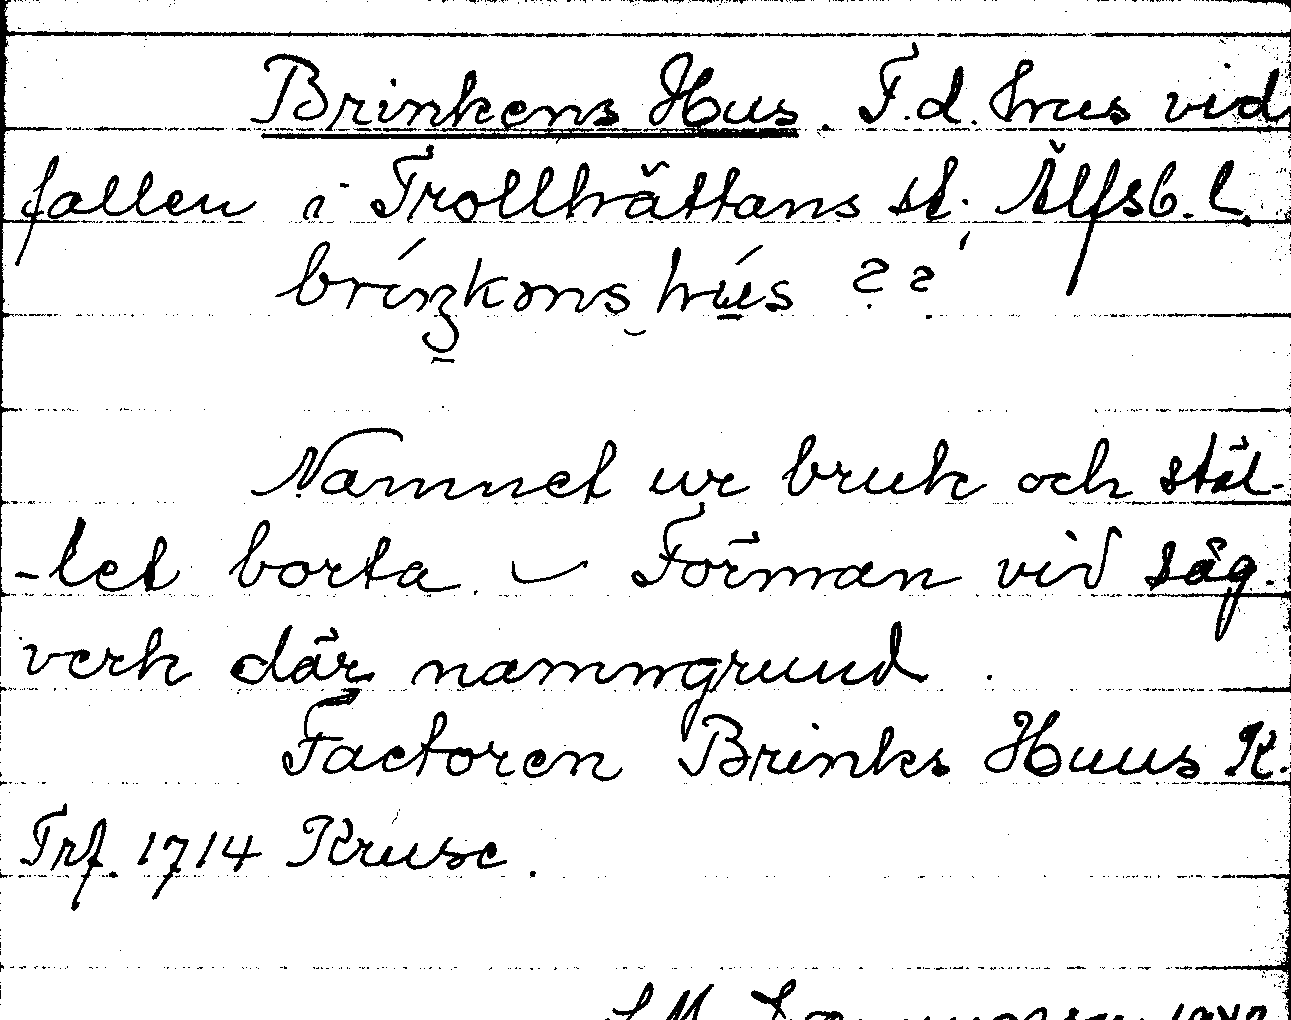 Brinkens Hus. F.d. hus vid
fallen i Trollhättans st. Älfsb. l.
hus ??
Namnet ur bruk och stäl-
-let borta. – Förman vid såg-
verk där namngrund.
Factoren Brinks Huus K.
Trf. 1714 Kruse.